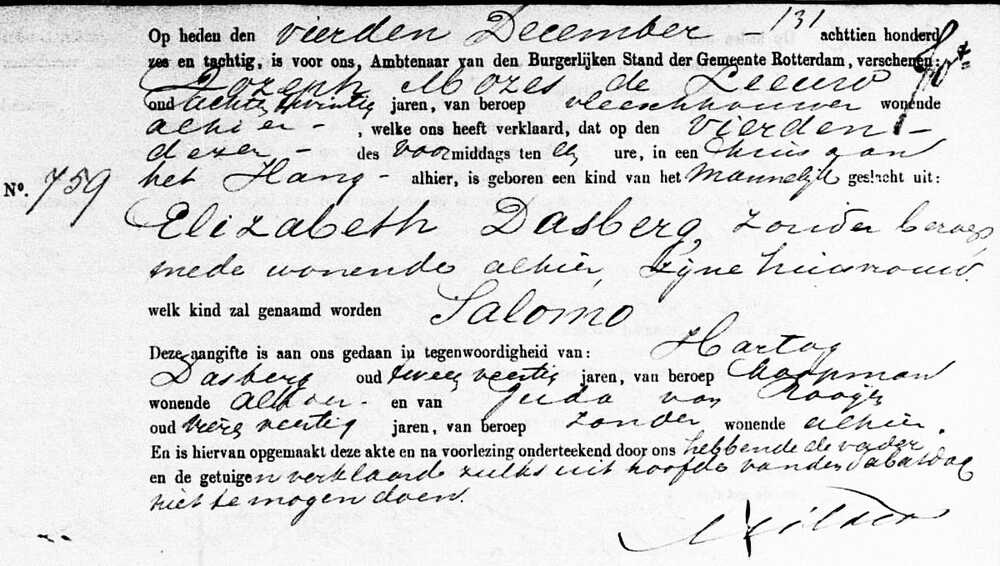 131
Op heden den vierden December - achttien honderd
zes en tachtig, is voor ons, Ambtenaar van den Burgerlijken Stand der Gemeente Rotterdam, verschenen:
Jozeph Mozes de Leeuw
oud achten twintig jaren, van beroep vleeschhouwer wonende
alhier - , welke ons heeft verklaard, dat op den vierden -
dezer - des voormiddags ten elf ure, in een huis aan
No. 759 het Hang - alhier, is geboren een kind van het Mannelijk geslacht uit:
Elizabeth Dasberg, zonder beroep
mede wonende alhier, zijne huisvrouw.
welk kind zal genaamd worden Salomo
Deze aangifte is aan ons gedaan in tegenwoordigheid van: Hartog
Dasberg oud twee veertig jaren, van beroep Koopman
wonende alhier - en van Juda van
oud vier veertig jaren, van beroep zonder wonende alhier.
En is hiervan opgemaakt deze akte en na voorlezing onderteekend door ons hebbende de vader
en de getuigen verklaard zulks uit hoofde van den Sabatdag
niet te mogen doen.